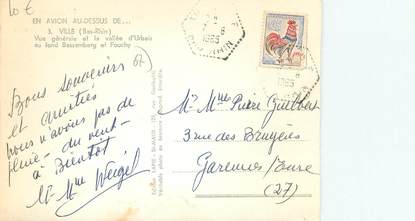 10 €
EN AVION AU-DESSUS DE...
3. VILLE (Bas-Rhin)
Vue générale et la vallée d'Urbeis
au fond Bassemberg et Fouchy
67
Bons souvenirs
et amitiés
nous n'avons pas de
pluie - du vent -
à Bientôt
Mr Mme Weigel
1965
RHIN
Mr Mme Pierre Guilbert
3 rue des Bruyères
Garennes s/Eure
(27)